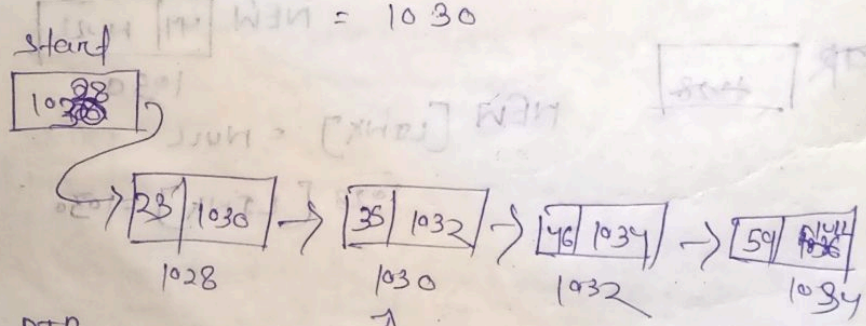 = 1030
Start
1028
23 1030 → 35 1032 → 46 1034 → 59
1028 1030 1032 1034
PTR